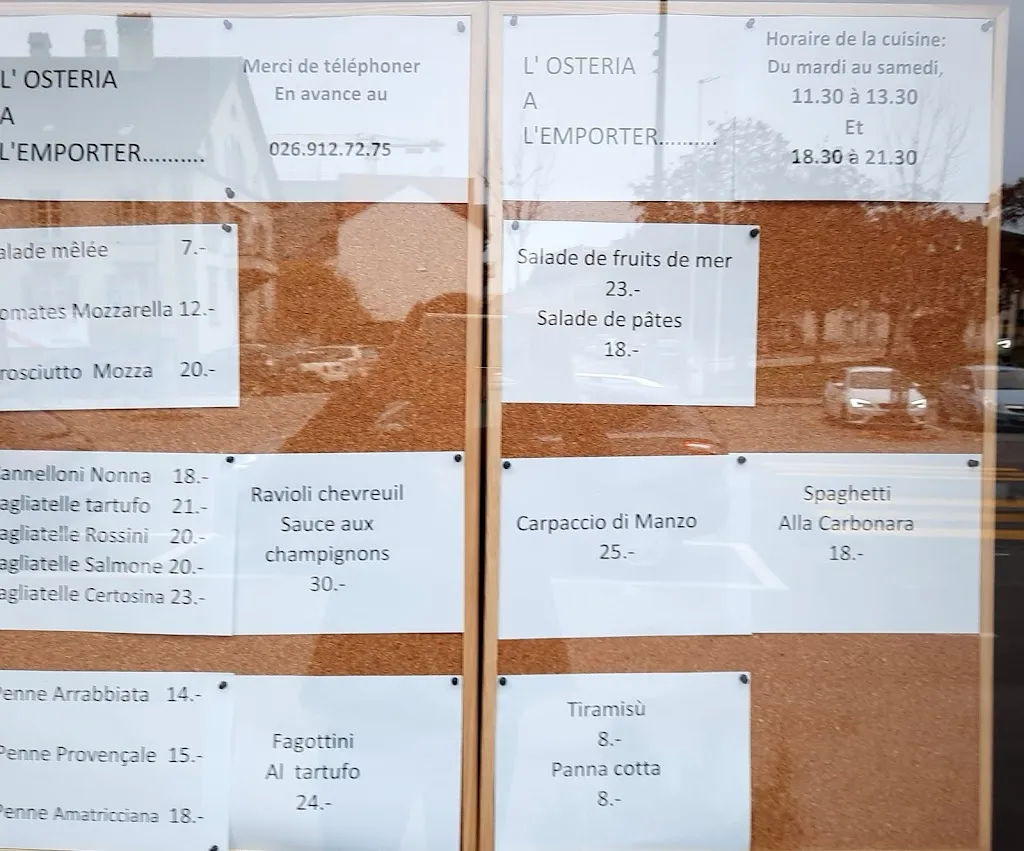 L' OSTERIA
A
L'EMPORTER..........
Merci de téléphoner
En avance au
026.912.72.75
alade mêlée 7.-
omates Mozzarella 12.-
rosciutto Mozza 20.-
annelloni Nonna 18.-
agliatelle tartufo 21.-
agliatelle Rossini 20.-
agliatelle Salmone 20.-
agliatelle Certosina 23.-
Ravioli chevreuil
Sauce aux
champignons
30.-
Penne Arrabbiata 14.-
Penne Provençale 15.-
Penne Amatricciana 18.-
Fagottini
Al tartufo
24.-
L' OSTERIA
A
L'EMPORTER..........
Horaire de la cuisine:
Du mardi au samedi,
11.30 à 13.30
Et
18.30 à 21.30
Salade de fruits de mer
23.-
Salade de pâtes
18.-
Carpaccio di Manzo
25.-
Spaghetti
Alla Carbonara
18.-
Tiramisù
8.-
Panna cotta
8.-